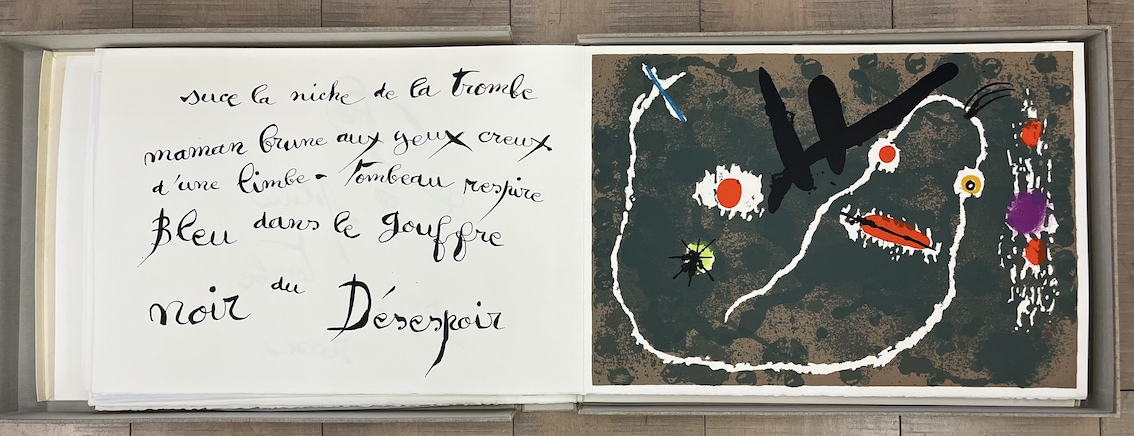 suce la niche de la Trombe
maman brune aux yeux creux
d'une limbe - Tombeau respire
Bleu dans le gouffre
noir du Désespoir